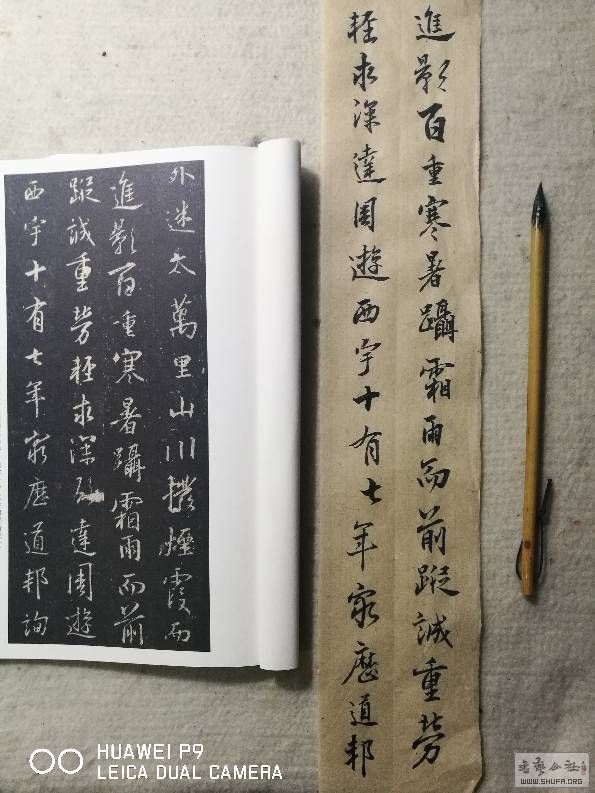 外迷天萬里山川撥煙霞而
進影百重寒暑躡霜雨而前
蹤誠重勞輕求深達周遊
西宇十有七年窮歷道邦詢
進影百重寒暑躡霜雨而前蹤誠重勞
輕求深達周遊西宇十有七年窮歷道邦
HUAWEI P9
LEICA DUAL CAMERA
书艺公社
WWW.SHUFA.ORG